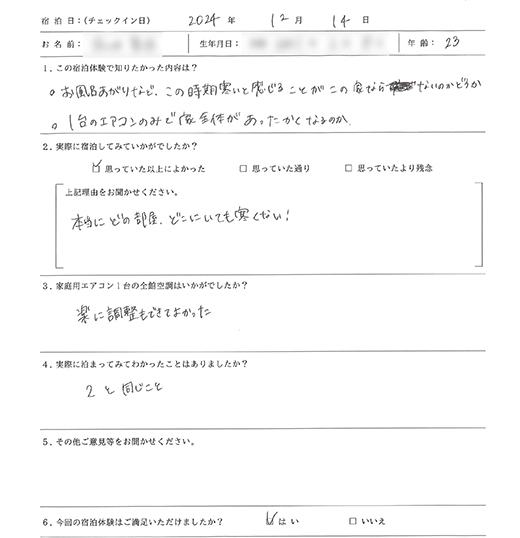 宿泊日:(チェックイン日) 2024 年 12 月 14 日
お名前: 生年月日: 年齢: 23
1. この宿泊体験で知りたかった内容は?
。お風呂あがりなど、この時期寒いと感じることがこの家なら ないのかどうか
。1台のエアコンのみで家全体があったかくなるのか
2. 実際に宿泊してみていかがでしたか?
☑ 思っていた以上によかった □ 思っていた通り □ 思っていたより残念
上記理由をお聞かせください。
本当にどの部屋、どこにいても寒くない!
3. 家庭用エアコン1台の全館空調はいかがでしたか?
楽に調整もできてよかった
4. 実際に泊まってみてわかったことはありましたか?
2と同じこと
5. その他ご意見等をお聞かせください。
6. 今回の宿泊体験はご満足いただけましたか? ☑ はい □ いいえ